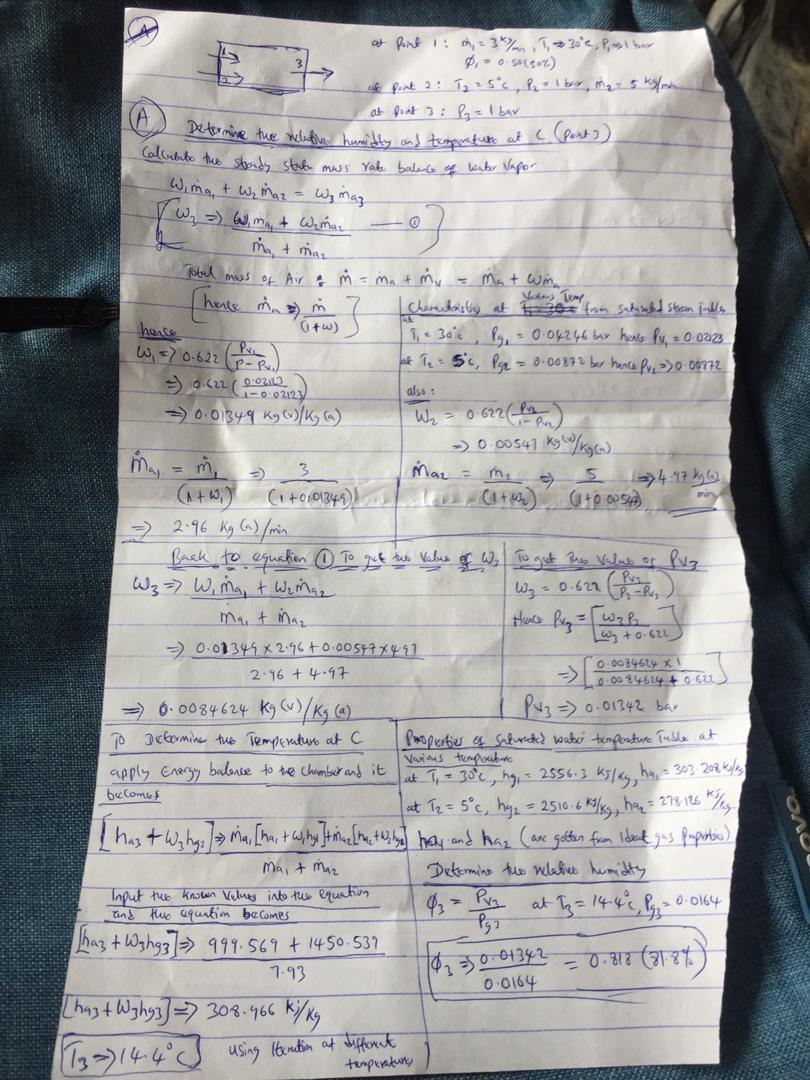 A
1
2
3
at Point 1 : ṁ₁ = 3 kg/min, T₁ ⇒ 30°c, P₁ ⇒ 1 bar
Φ₁ = 0.50 (50%)
at Point 2 : T₂ = 5°c, P₂ = 1 bar, ṁ₂ = 5 kg/min
at Point 3 : P₃ = 1 bar
A
Determine the relative humidity and temperature at C (Point 3)
Calculate the steady state mass rate balance of water vapor
ω₁ṁa₁ + ω₂ṁa₂ = ω₃ṁa₃
[ω₃ ⇒ (ω₁ṁa₁ + ω₂ṁa₂) / (ṁa₁ + ṁa₂) —— ①]
Total mass of Air : ṁ = ṁa + ṁv = ṁa + ωṁa
[hence ṁa ⇒ ṁ / (1+ω)]
hence
ω₁ ⇒ 0.622 (Pv₁ / P − Pv₁)
⇒ 0.622 (0.02123 / 1 − 0.02123)
⇒ 0.01349 Kg(v)/Kg(a)
Characteristics at Various Temp from saturated steam tables
at
T₁ = 30°c, Pg₁ = 0.04246 bar hence Pv₁ = 0.02123
at T₂ = 5°c, Pg₂ = 0.00872 bar hence Pv₂ ⇒ 0.00872
also:
ω₂ = 0.622 (Pv₂ / 1 − Pv₂)
⇒ 0.00547 Kg(v)/Kg(a)
ṁa₁ = ṁ₁ / (1+ω₁) ⇒ 3 / (1+0.01349)
⇒ 2.96 Kg(a)/min
ṁa₂ = ṁ₂ / (1+ω₂) ⇒ 5 / (1+0.00547) ⇒ 4.97 kg(a)/min
Back to equation ① To get the value of ω₃
ω₃ ⇒ (ω₁ṁa₁ + ω₂ṁa₂) / (ṁa₁ + ṁa₂)
⇒ (0.01349 × 2.96 + 0.00547 × 4.97) / (2.96 + 4.97)
⇒ 0.0084624 Kg(v)/Kg(a)
To get the values of Pv₃
ω₃ = 0.622 (Pv₃ / P₃ − Pv₃)
Hence Pv₃ = [ω₃P₃ / ω₃ + 0.622]
⇒ [0.0084624 × 1 / 0.0084624 + 0.622]
Pv₃ ⇒ 0.01342 bar
To Determine the Temperature at C
apply Energy balance to the chamber and it
becomes
[ha₃ + ω₃hg₃] ⇒ (ṁa₁[ha₁ + ω₁hg₁] + ṁa₂[ha₂ + ω₂hg₂]) / (ṁa₁ + ṁa₂)
Input the known values into the equation
and the equation becomes
[ha₃ + ω₃hg₃] ⇒ (999.569 + 1450.539) / 7.93
[ha₃ + ω₃hg₃] ⇒ 308.966 KJ/Kg
T₃ ⇒ 14.4°c using Iteration at different
temperatures
Properties of saturated water temperature Table at
various temperature
at T₁ = 30°c, hg₁ = 2556.3 KJ/Kg, ha₁ = 303.208 KJ/Kg
at T₂ = 5°c, hg₂ = 2510.6 KJ/Kg, ha₂ = 278.126 KJ/Kg
ha₁ and ha₂ (are gotten from Ideal gas Properties)
Determine the relative humidity
Φ₃ = Pv₃ / Pg₃ at T₃ = 14.4°c, Pg₃ = 0.0164
Φ₃ ⇒ 0.01342 / 0.0164 = 0.818 (81.8%)